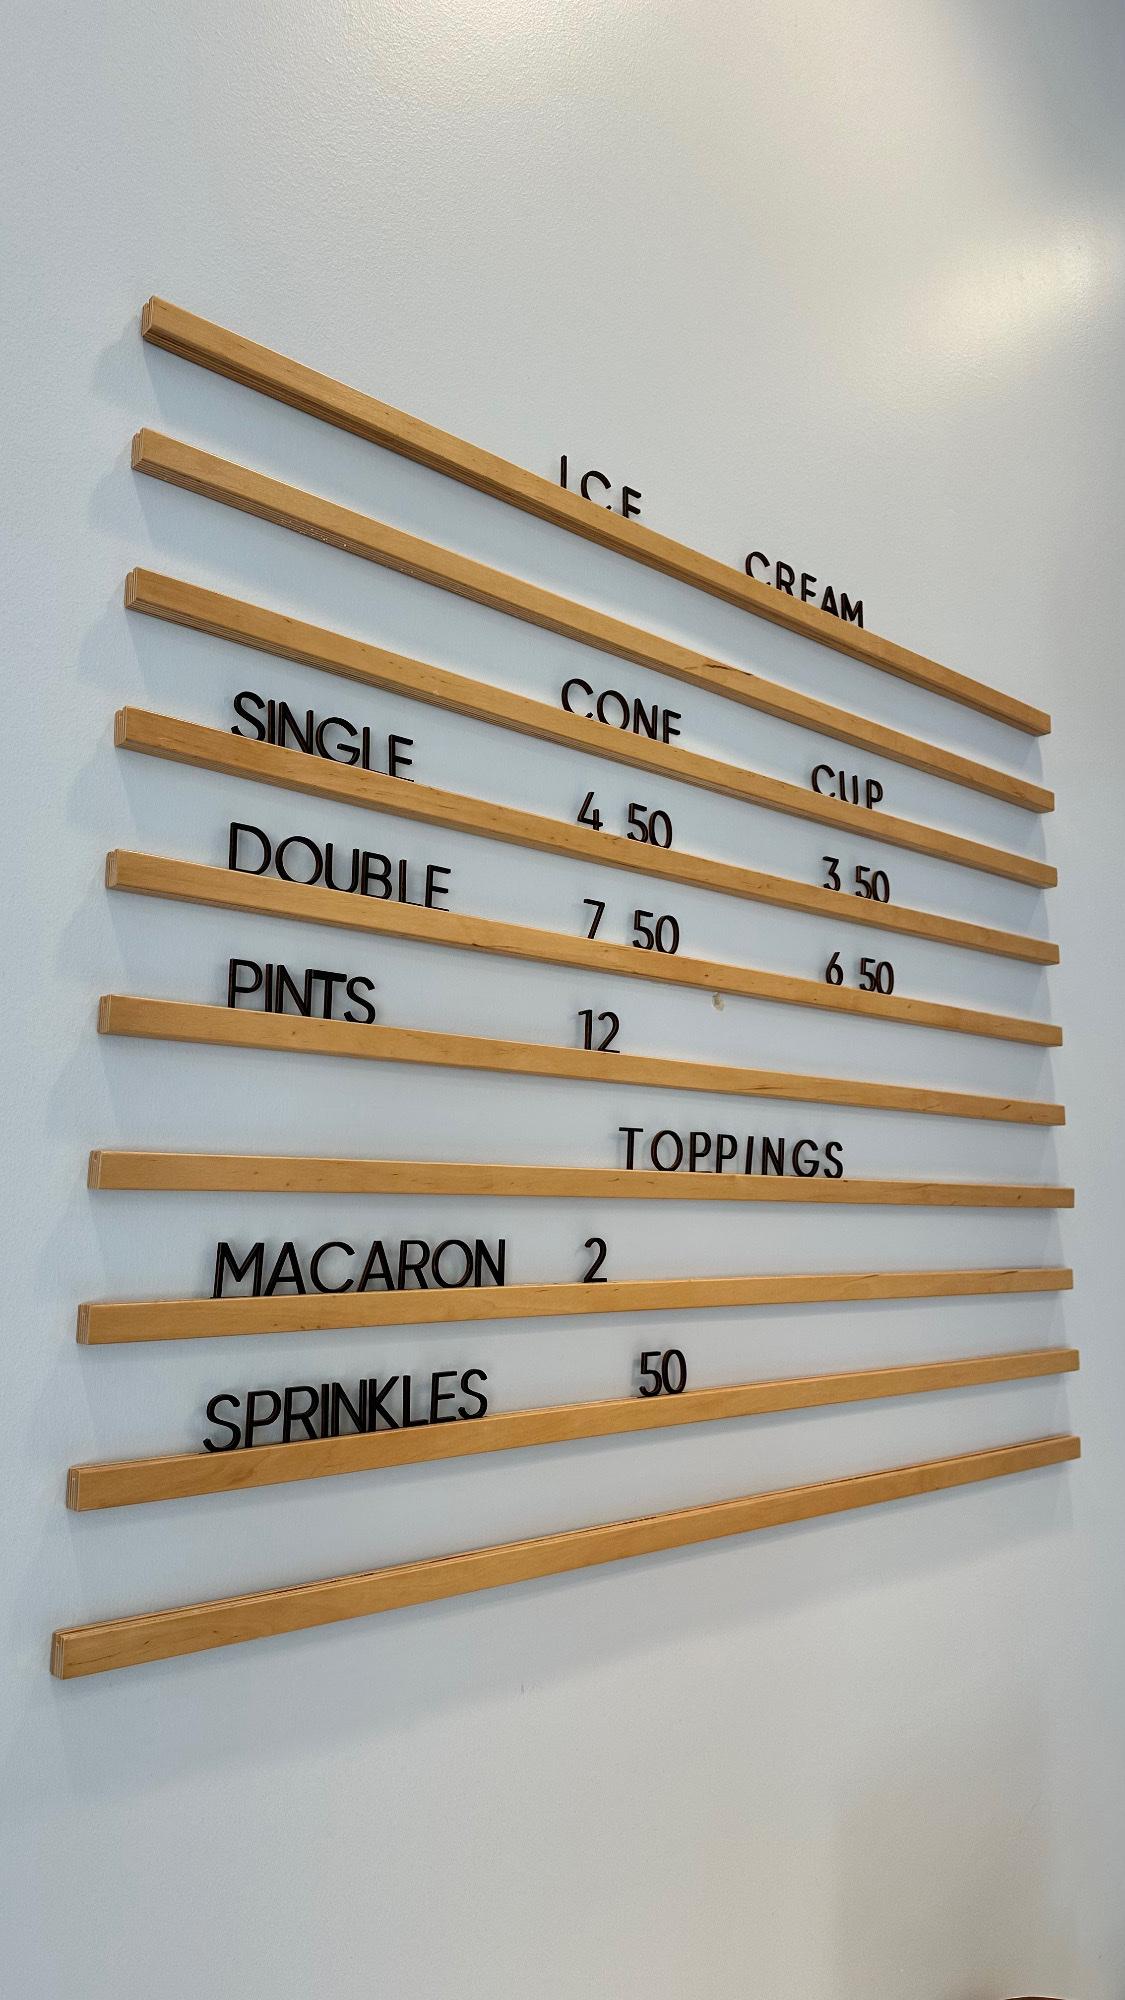 ICE CREAM
CONE CUP
SINGLE 4 50 3 50
DOUBLE 7 50 6 50
PINTS 12
TOPPINGS
MACARON 2
SPRINKLES 50